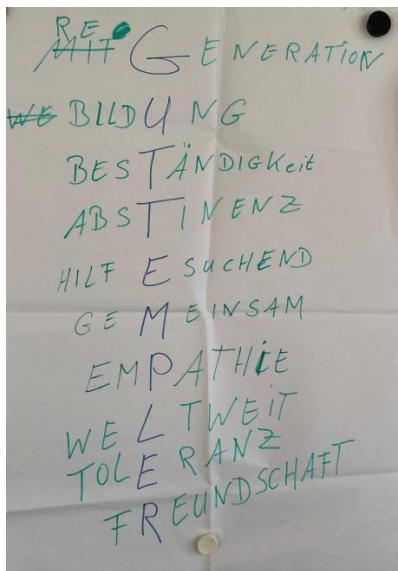 RE GENERATION
BILDUNG
BESTÄNDIGKEIT
ABSTINENZ
HILFESUCHEND
GEMEINSAM
EMPATHIE
WELTWEIT
TOLERANZ
FREUNDSCHAFT